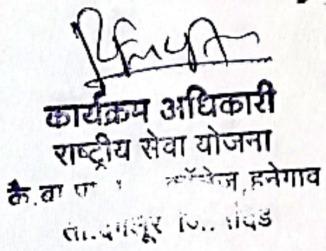 कार्यक्रम अधिकारी
राष्ट्रीय सेवा योजना
कै.बा हनेगाव
ता.देगलूर जि. नांदेड